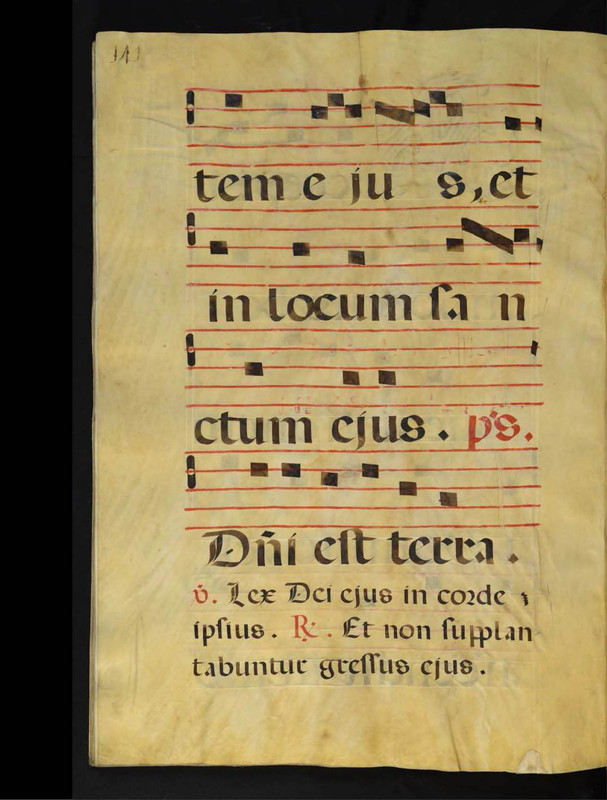 141
tem e ju s, et
in locum ſa n
ctum ejus. ps.
Dñi eſt terra.
℣. Lex Dei ejus in corde
ipſius. ℟. Et non ſupplan
tabuntur greſſus ejus.